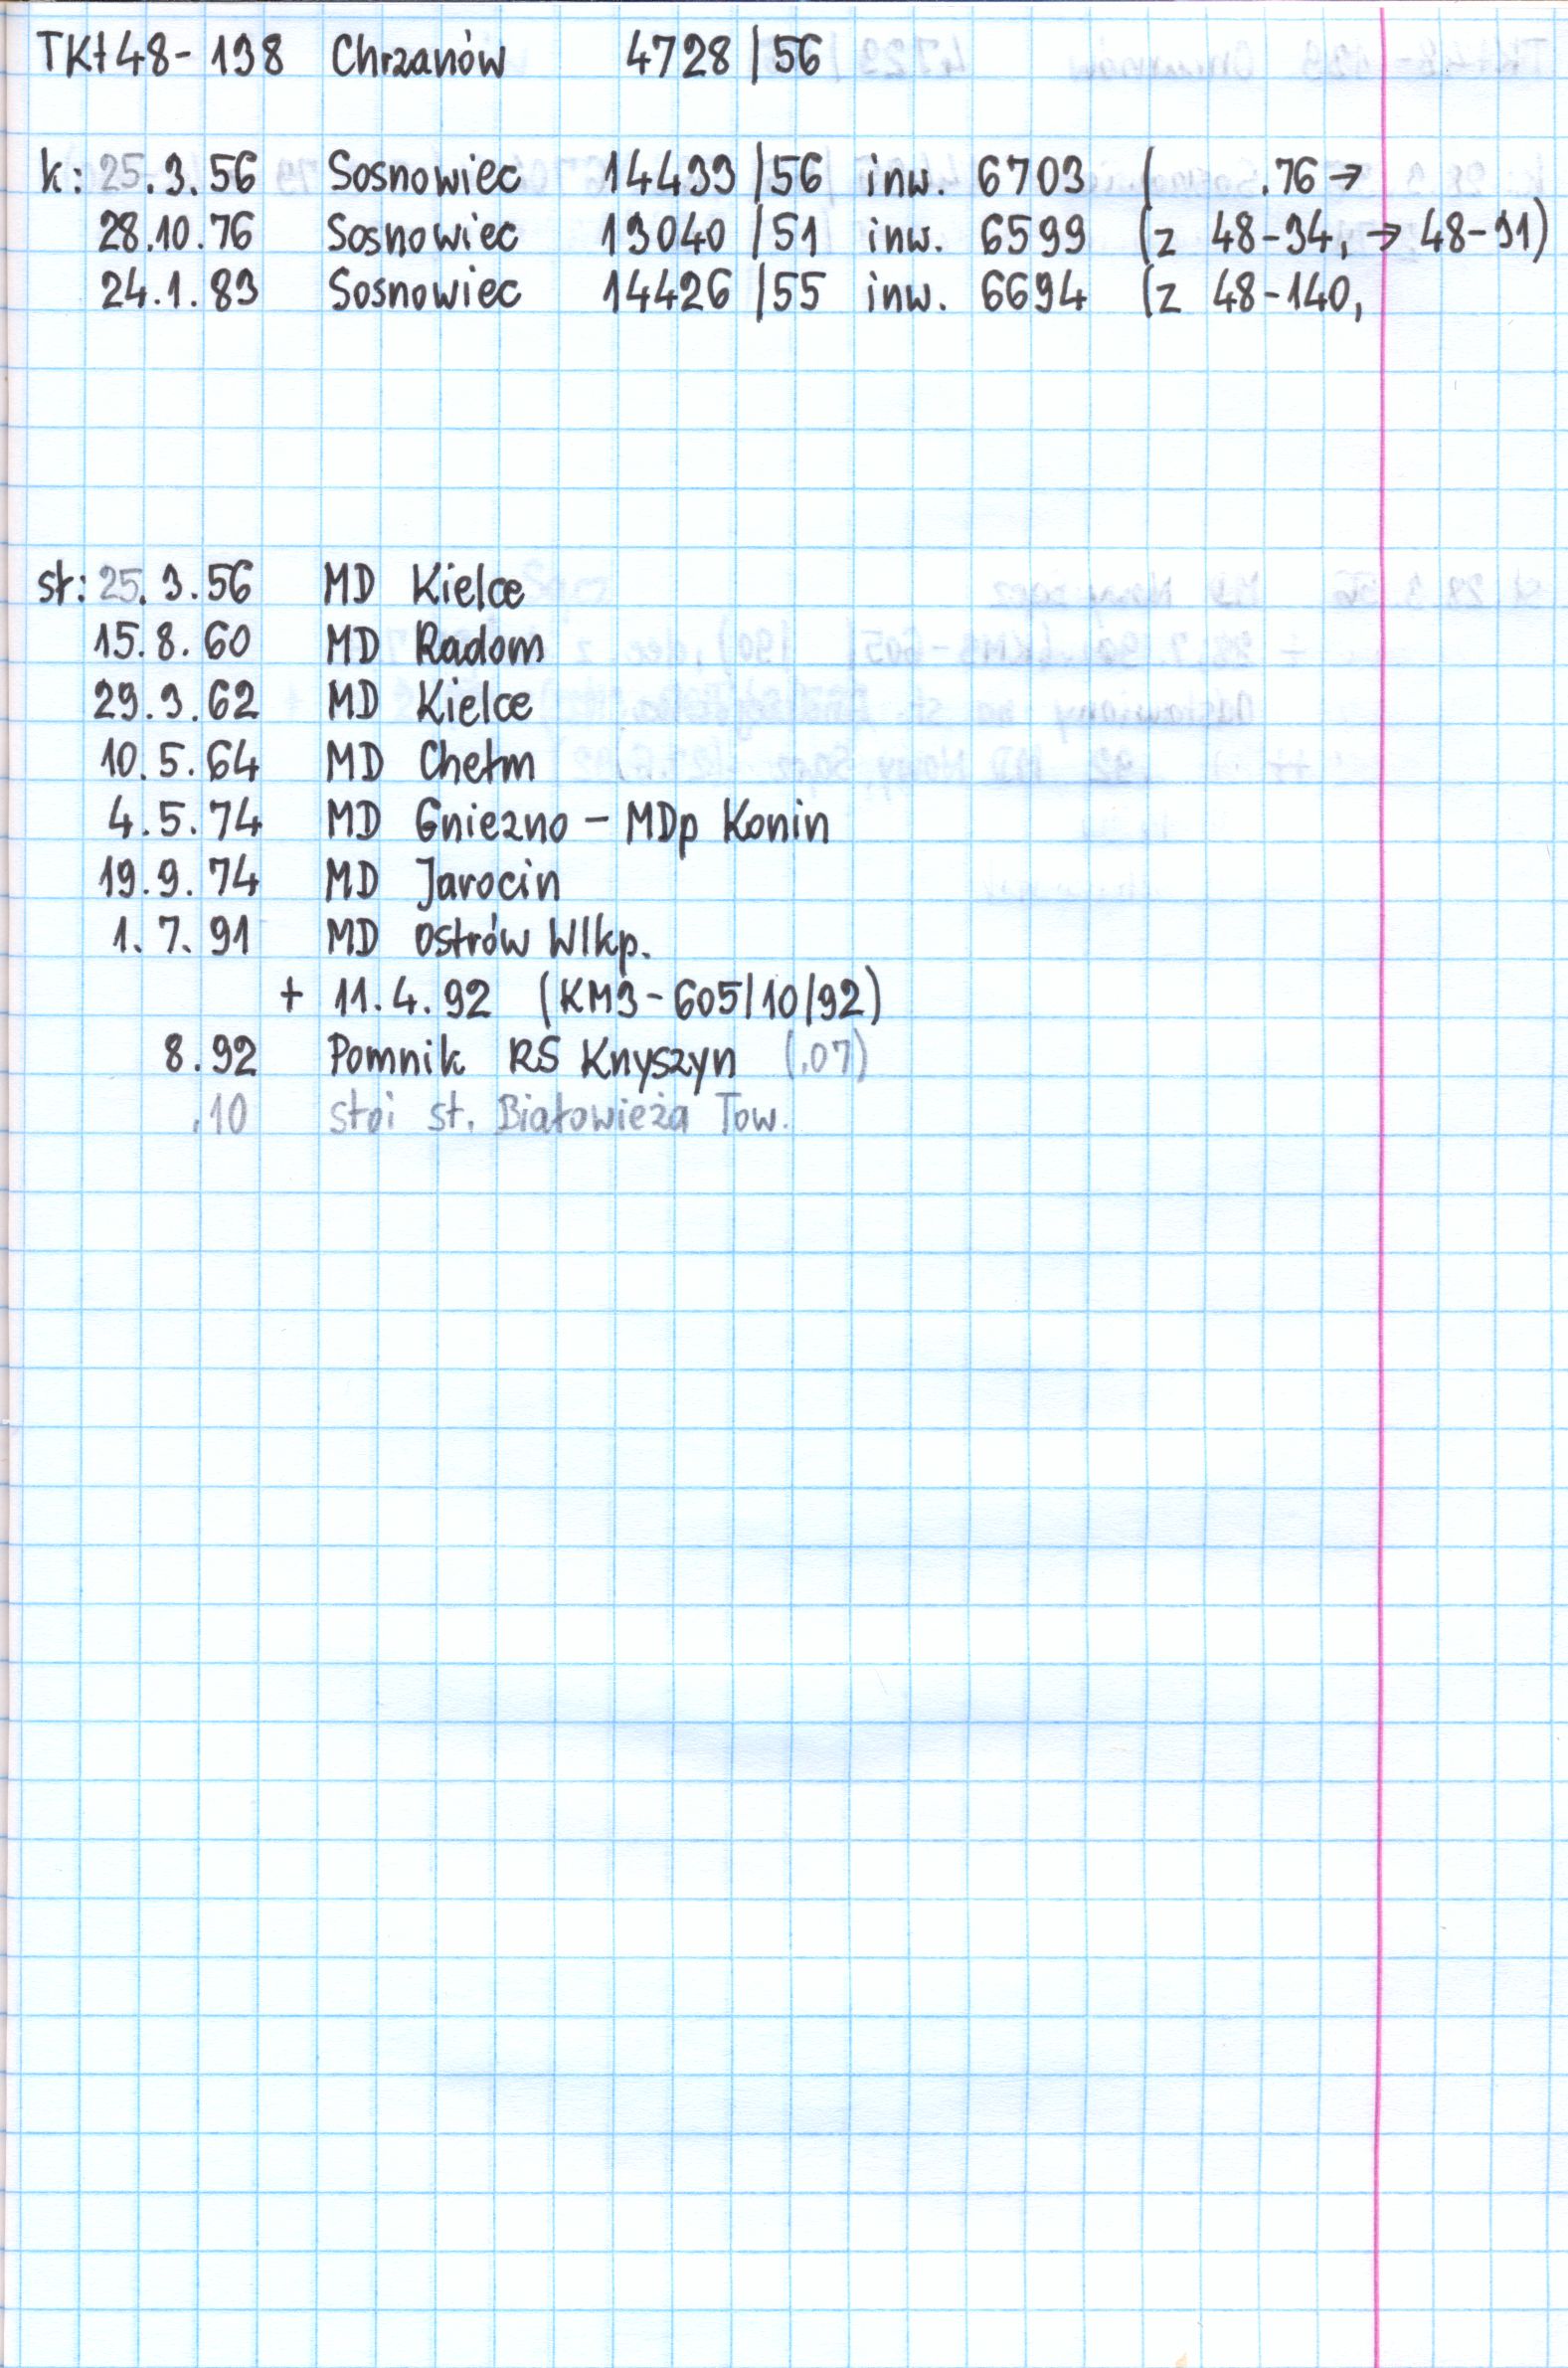 TKt48-138 Chrzanów 4728/56
k: 25.3.56 Sosnowiec 14433/56 inw. 6703 ( .76→
28.10.76 Sosnowiec 13040/51 inw. 6599 (z 48-34, → 48-91)
24.1.83 Sosnowiec 14426/55 inw. 6694 (z 48-140,
st: 25.3.56 MD Kielce
15.8.60 MD Radom
29.3.62 MD Kielce
10.5.64 MD Chełm
4.5.74 MD Gniezno - MDp Konin
19.9.74 MD Jarocin
1.7.91 MD Ostrów Wlkp.
+ 11.4.92 (KM3-605/10/92)
8.92 Pomnik RS Knyszyn (.07)
.10 stoi st. Białowieża Tow.